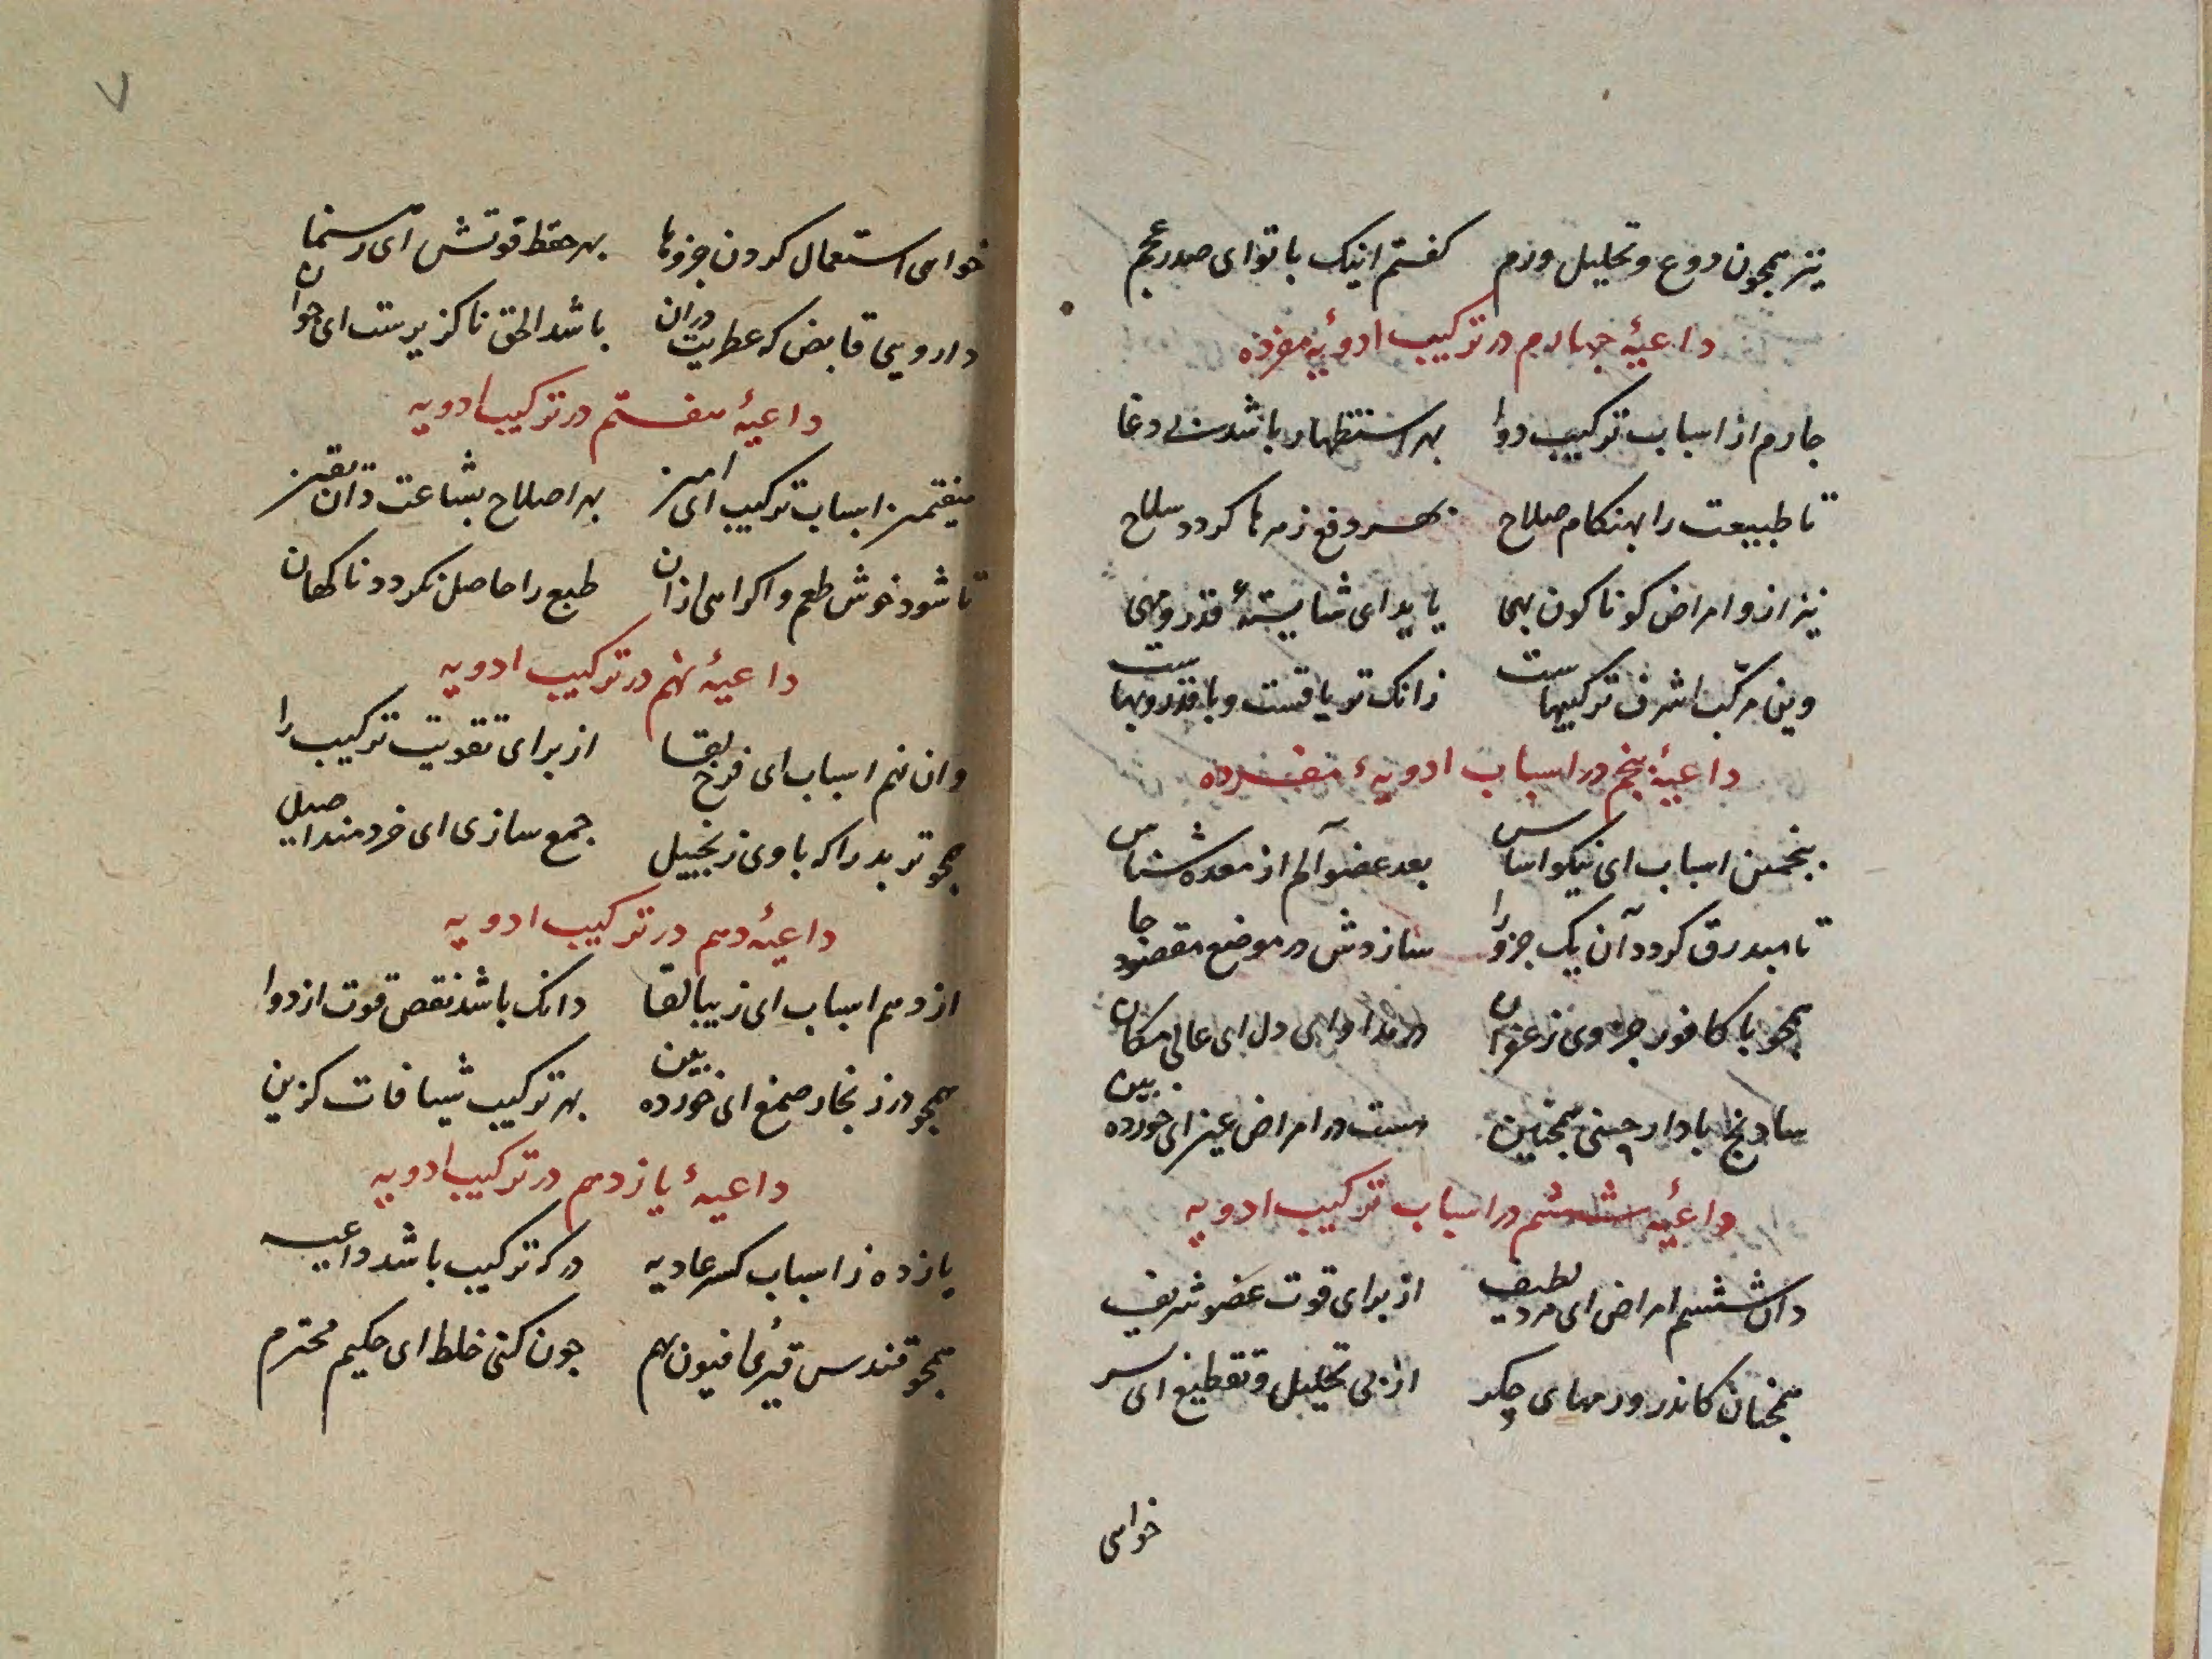 نیز همچون دوع و تحلیل ورم کفتم اینک با تو ای صدر عجم
داعیهٔ جهارم در ترکیب ادویهٔ مفرده
جارم از اسباب ترکیب دوا بهر استظهار باشد بی دغا
تا طبیعت را بهنکام صلاح بهر دفع زهر ها کردد سلاح
نیز ازو امراض کوناکون بهی یابد ای شایستهٔ قدر و مهی
وین مرکب اشرف ترکیبهاست زانک تریاقست و با قدر و بهاست
داعیهٔ پنجم در اسباب ادویهٔ مفرده
پنجمین اسباب ای نیکو اساس بعد عضو آلم از معده شناس
تا مبدرق کردد آن یک جزو را سازدش در موضع مقصود جا
همجو با کافور جزوی زعفران در مداوای دل ای عالی مکان
سادنج با دارچینی همچنین هست در امراض عین ای خورده بین
داعیهٔ ششم در اسباب ترکیب ادویه
دان ششم امراض ای مرد لطیف از برای قوت عضو شریف
همچنان کاندر ورمهای جکر از پی تحلیل و تقطیع ای سر
خواهی
۷
خواهی استعمال کردن جزوها بهر حفظ قوتش ای رهنما
دارویی قابض که عطریت دران باشد الحق ناکزیرست ای جوان
داعیهٔ هفتم در ترکیب ادویه
هفتمین اسباب ترکیب ای امین بهر اصلاح بشاعت دان یقین
تا شود خوش طعم و اکراهی ازان طبع را حاصل نکردد ناکهان
داعیهٔ نهم در ترکیب ادویه
وان نهم اسباب ای فرخ لقا از برای تقویت ترکیب را
همجو تربد را که با وی زنجبیل جمع سازی ای خردمند اصیل
داعیهٔ دهم در ترکیب ادویه
از دهم اسباب ای زیبا لقا دانک باشد نقص قوت از دوا
همجو در زنجار صمغ ای خورده بین بهر ترکیب شیافات کزین
داعیهٔ یازدهم در ترکیب ادویه
یازده ز اسباب کسر عادیه در که ترکیب باشد داعیه
همجو قندس با افیون بهم جون کنی خلط ای حکیم محترم